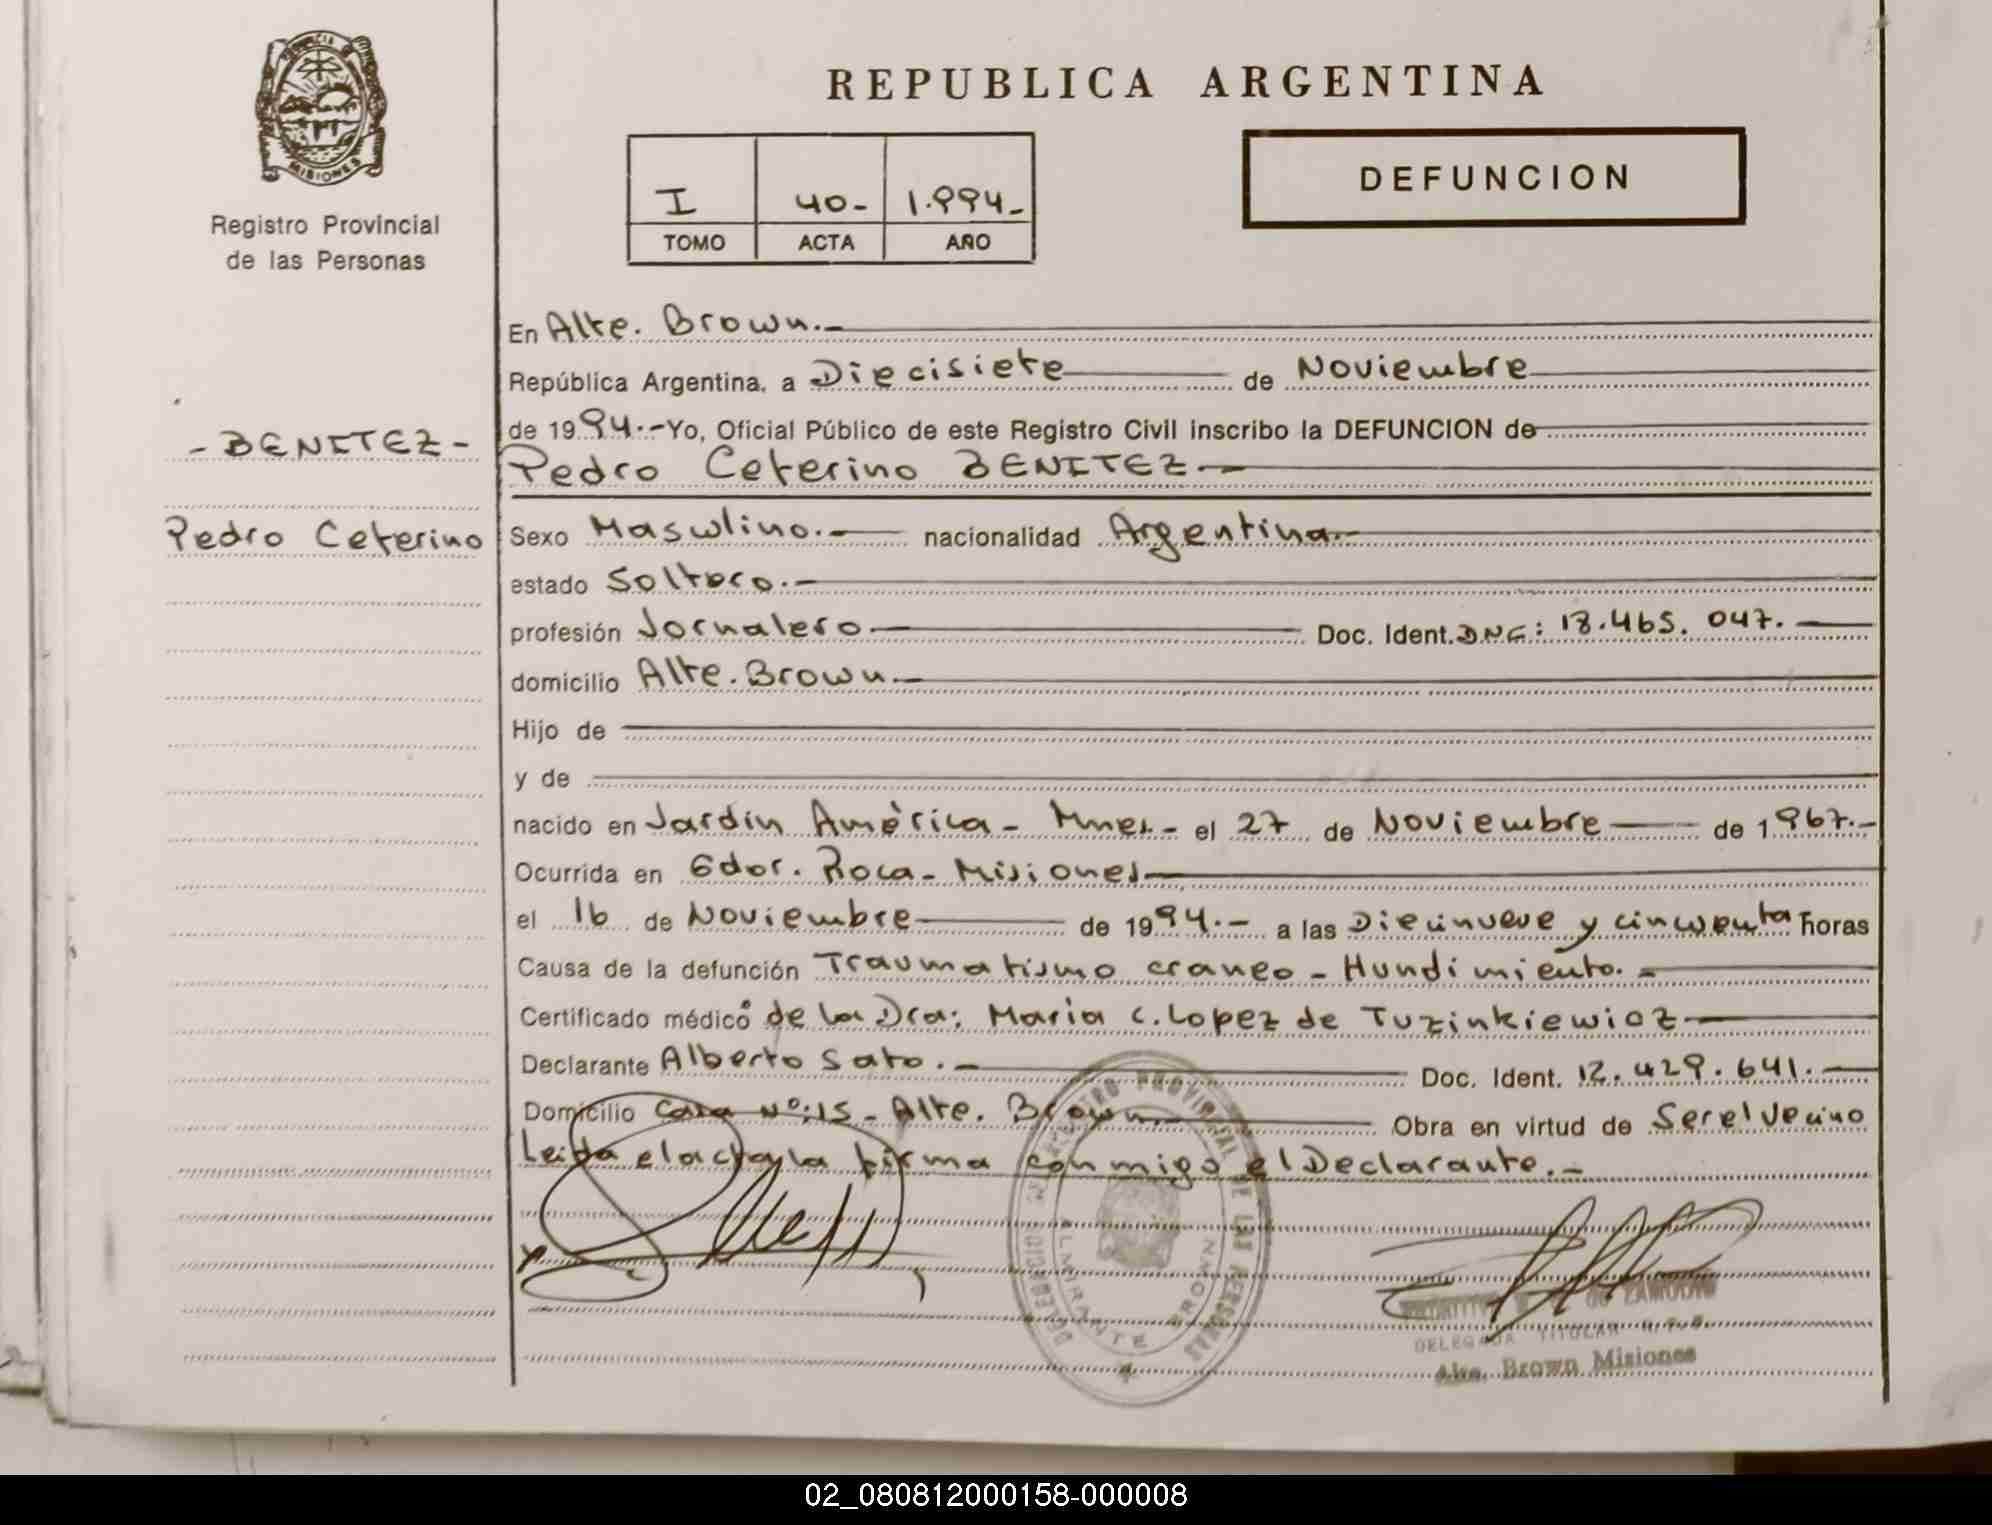 PROVINCIA DE
MISIONES
Registro Provincial
de las Personas
REPUBLICA ARGENTINA
I 40- 1.994-
TOMO ACTA AÑO
DEFUNCION
En Alte. Brown.-
República Argentina, a Diecisiete de Noviembre
de 1994.- Yo, Oficial Público de este Registro Civil inscribo la DEFUNCION de
- BENITEZ -
Pedro Ceterino BENITEZ.-
Pedro Ceterino
Sexo Masculino.- nacionalidad Argentina.-
estado Soltero.-
profesión Jornalero Doc. Ident. DNI: 18.465.047.-
domicilio Alte. Brown.-
Hijo de
y de
nacido en Jardin América - Mnes.- el 27 de Noviembre de 1967.-
Ocurrida en Gdor. Roca - Misiones
el 16 de Noviembre de 1994.- a las Diecinueve y cincuenta horas
Causa de la defunción Traumatismo craneo - Hundimiento.-
Certificado médico de la Dra: Maria C. Lopez de Tuzinkiewioz
Declarante Alberto Sato.- Doc. Ident. 12.429.641.-
Domicilio Casa Nº:15 - Alte. Brown.- Obra en virtud de Ser el Vecino
Leida el acta, la firma conmigo el Declarante.-
REGISTRO PROVINCIAL DE LAS PERSONAS
ALMIRANTE BROWN
DE ZAMUDIO
DELEGADA TITULAR R.P.P.
Alte. Brown Misiones
02_080812000158-000008